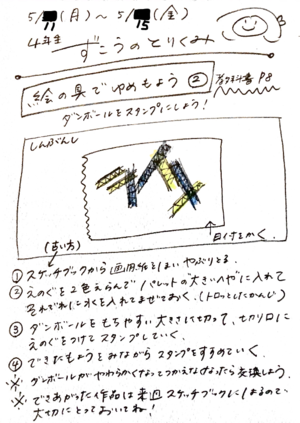 5/11(月)～5/15(金)
4年生
ずこうのとりくみ
絵の具でゆめもよう②
教科書P8
ダンボールをスタンプにしよう!
しんぶんし
日付をかく。
(すい方)
①スケッチブックから画用紙を1まいやぶりとる。
②えのぐを2色えらんでパレットの大きいへやに入れて
それぞれに水を入れてまぜておく。(トロッとしたかんじ)
③ダンボールをもちやすい大きさに切って、切り口に
えのぐをつけてスタンプしていく。
④できたもようをみながらスタンプをすすめていく。
※ダンボールがやわらかくなってつかえなくなったら交換しよう。
※できあがった作品は来週スケッチブックにはるので、
大切にとっておいてね!